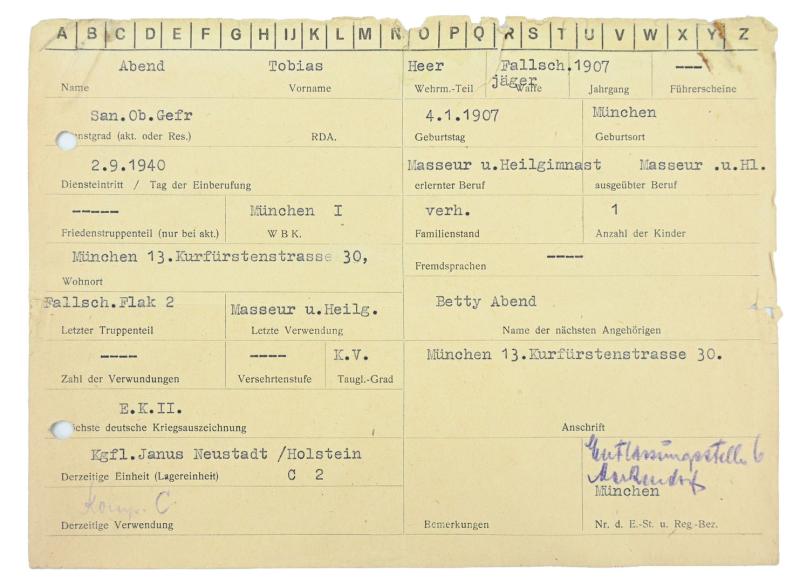 A B C D E F G H IJ K L M N O P Q R S T U V W X Y Z
Abend Tobias Heer Fallsch. 1907 ---
jäger
Name Vorname Wehrm.-Teil Waffe Jahrgang Führerscheine
San.Ob.Gefr 4.1.1907 München
nstgrad (akt. oder Res.) RDA. Geburtstag Geburtsort
2.9.1940 Masseur u.Heilgimnast Masseur .u.Hl.
Diensteintritt / Tag der Einberufung erlernter Beruf ausgeübter Beruf
----- München I verh. 1
Friedenstruppenteil (nur bei akt.) W B K. Familienstand Anzahl der Kinder
München 13.Kurfürstenstrasse 30, ----
Wohnort Fremdsprachen
Fallsch.Flak 2 Masseur u.Heilg. Betty Abend
Letzter Truppenteil Letzte Verwendung Name der nächsten Angehörigen
---- ---- K.V. München 13.Kurfürstenstrasse 30.
Zahl der Verwundungen Versehrtenstufe Taugl.-Grad
E.K.II.
chste deutsche Kriegsauszeichnung Anschrift
Kgfl.Janus Neustadt /Holstein Entlassungsstelle 6
Derzeitige Einheit (Lagereinheit) C 2 Markendorf
Komp. C München
Derzeitige Verwendung Bemerkungen Nr. d. E.-St. u. Reg.-Bez.